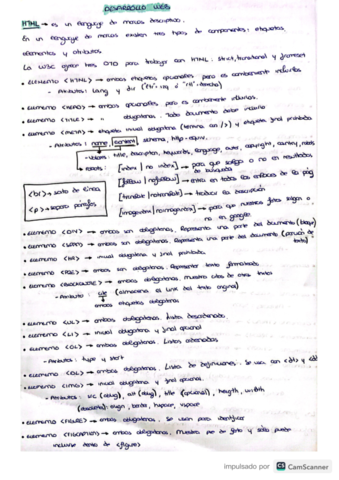 DESARROLLO WEB
HTML → es un lenguaje de marcas descriptivo.
En un lenguaje de marcas existen tres tipos de componentes: etiquetas,
elementos y atributos.
La W3C ofrece tres DTD para trabajar con HTML: Strict, transitional y frameset
• ELEMENTO <HTML> → ambas etiquetas opcionales pero es conveniente incluirlas
- Atributos: lang y dir
• ELEMENTO <HEAD> → ambas opcionales, pero es conveniente incluirlas.
• ELEMENTO <TITLE> → " obligatorias. Todo documento debe incluirlo
• ELEMENTO <META> → etiqueta inicial obligatoria (termina con />) y etiqueta final prohibida
- Atributos: name, content, scheme, http-equiv.
<br> → salto de línea
<p> → separa párrafos
→ robots: [index | no index] → para que salga o no en resultados
de búsqueda
[follow | nofollow] → entra en todos los enlaces de la pág
[translate | notranslate] → traduce la descripción
[imageindex | noimageindex] → para que nuestras fotos salgan o
no en google
• ELEMENTO <DIV> → ambas son obligatorias. Representa una parte del documento (bloque)
• ELEMENTO <SPAN> → ambas son obligatorias. Representa una parte del documento (porción de
texto)
• ELEMENTO <HR> → inicial obligatoria y final prohibida.
• ELEMENTO <PRE> → ambas son obligatorias. Representar texto formateado
• ELEMENTO <BLOCKQUOTE> → ambas obligatorias. Muestra citas de otros textos
- Atributo: cite (almacena el link del texto original)
ambas etiquetas obligatorias
• ELEMENTO <UL> → ambas obligatorias. Listas desordenadas.
• ELEMENTO <LI> → inicial obligatoria y final opcional
• ELEMENTO <OL> → ambas obligatorias. Listas ordenadas
- Atributos: type y start
• ELEMENTO <DL> → ambas obligatorias. Listas de definiciones. Se usa con <dt> y <dd>
• ELEMENTO <IMG> → inicial obligatoria y final opcional.
- Atributos: src (oblig), alt (oblig), title (opcional), height, width
(obsoleto): align, border, hspace, vspace
• ELEMENTO <FIGURE> → ambas obligatorias. Se usan para identificar
• ELEMENTO <FIGCAPTION> → ambas obligatorias, muestra pie de foto y solo puede
incluirse dentro de <figure>
impulsado por CS CamScanner